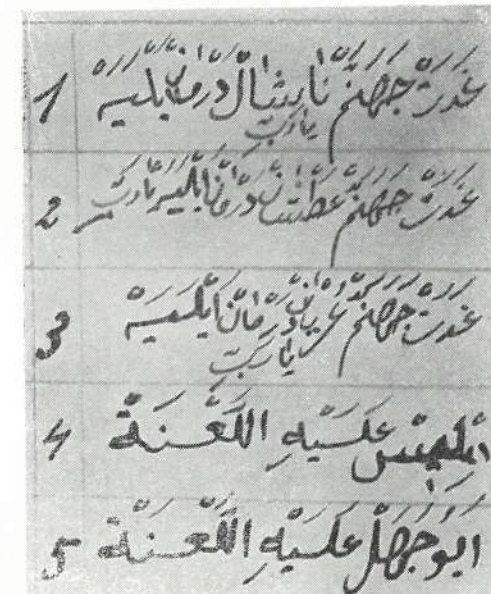 1 غَدَتْ جَهَنَّمْ دَرْمَانْ اَيْلِيَهْ
يَارَبّ
2 غَدَتْ جَهَنَّمْ عَطْشَانْ دَرْمَانْ اَيْلِيَهْ يَارَبّ
3 غَدَتْ جَهَنَّمْ عُرْيَانْ دَرْمَانْ اَيْلِيَهْ
يَارَبّ
4 اِبْلِيسْ عَلَيْهِ اللَّعْنَةْ
5 اَبُو جَهَلْ عَلَيْهِ اللَّعْنَةْ